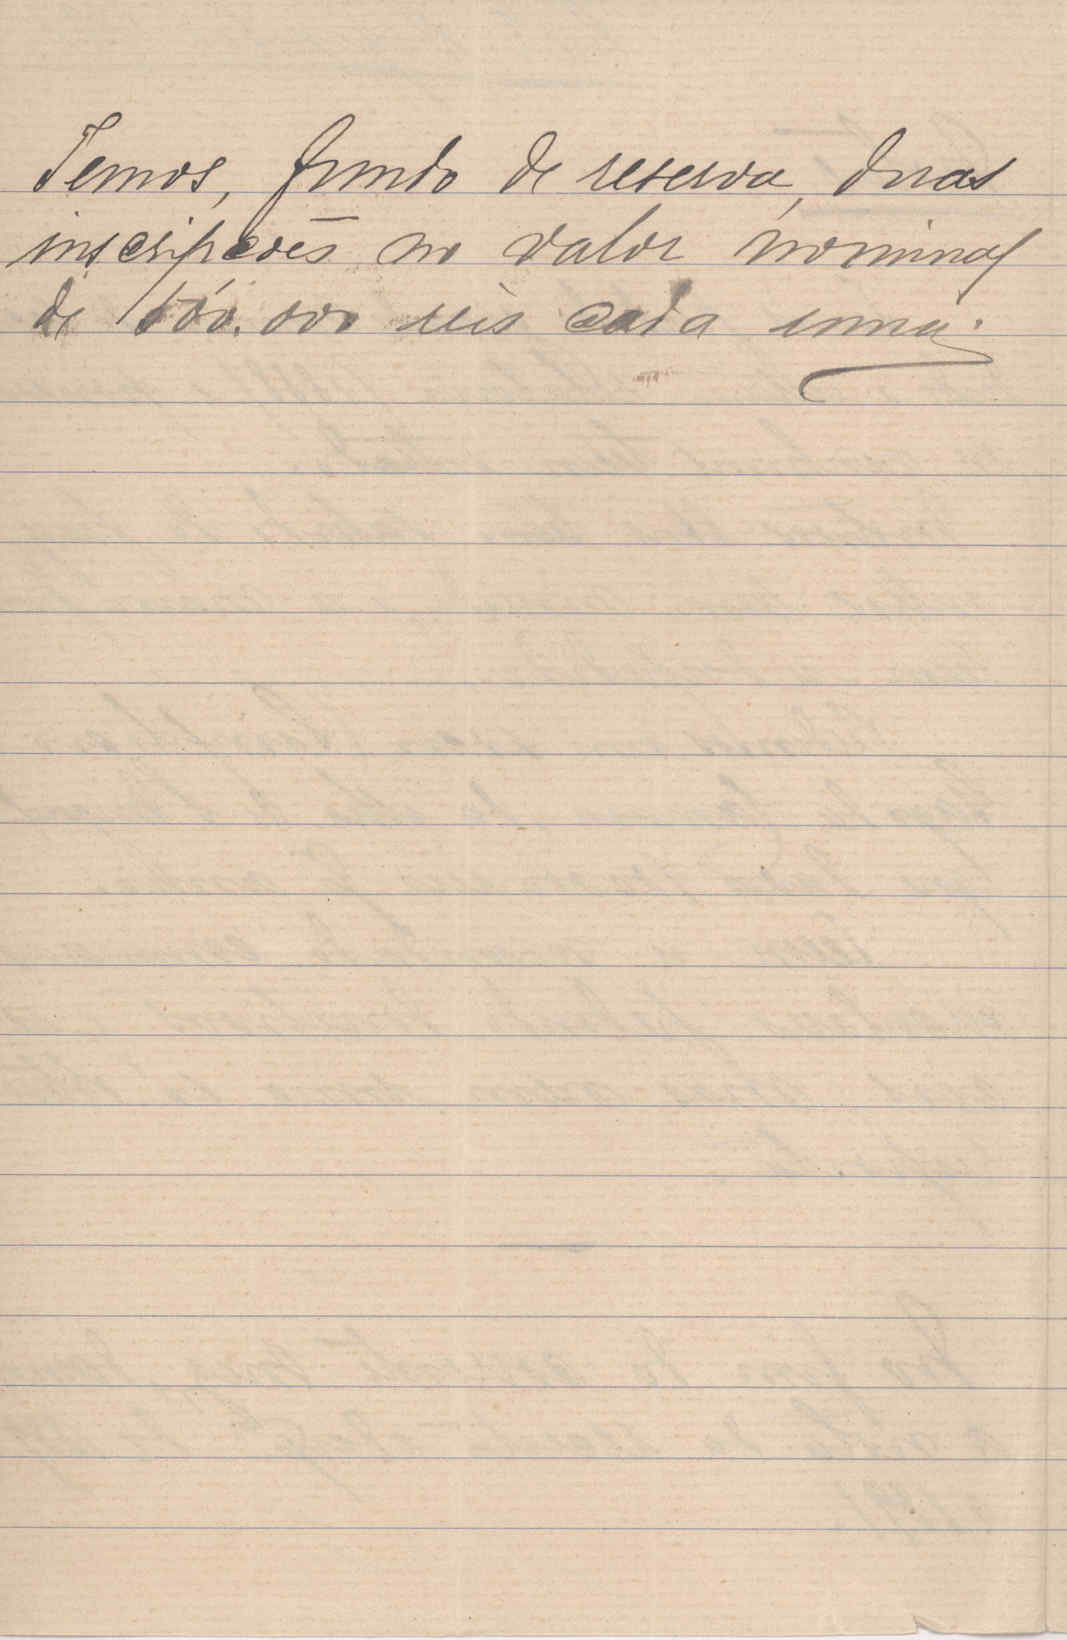 Temos, fundo de reserva, duas
inscripções no valor nominal
de 100.000 reis cada uma.